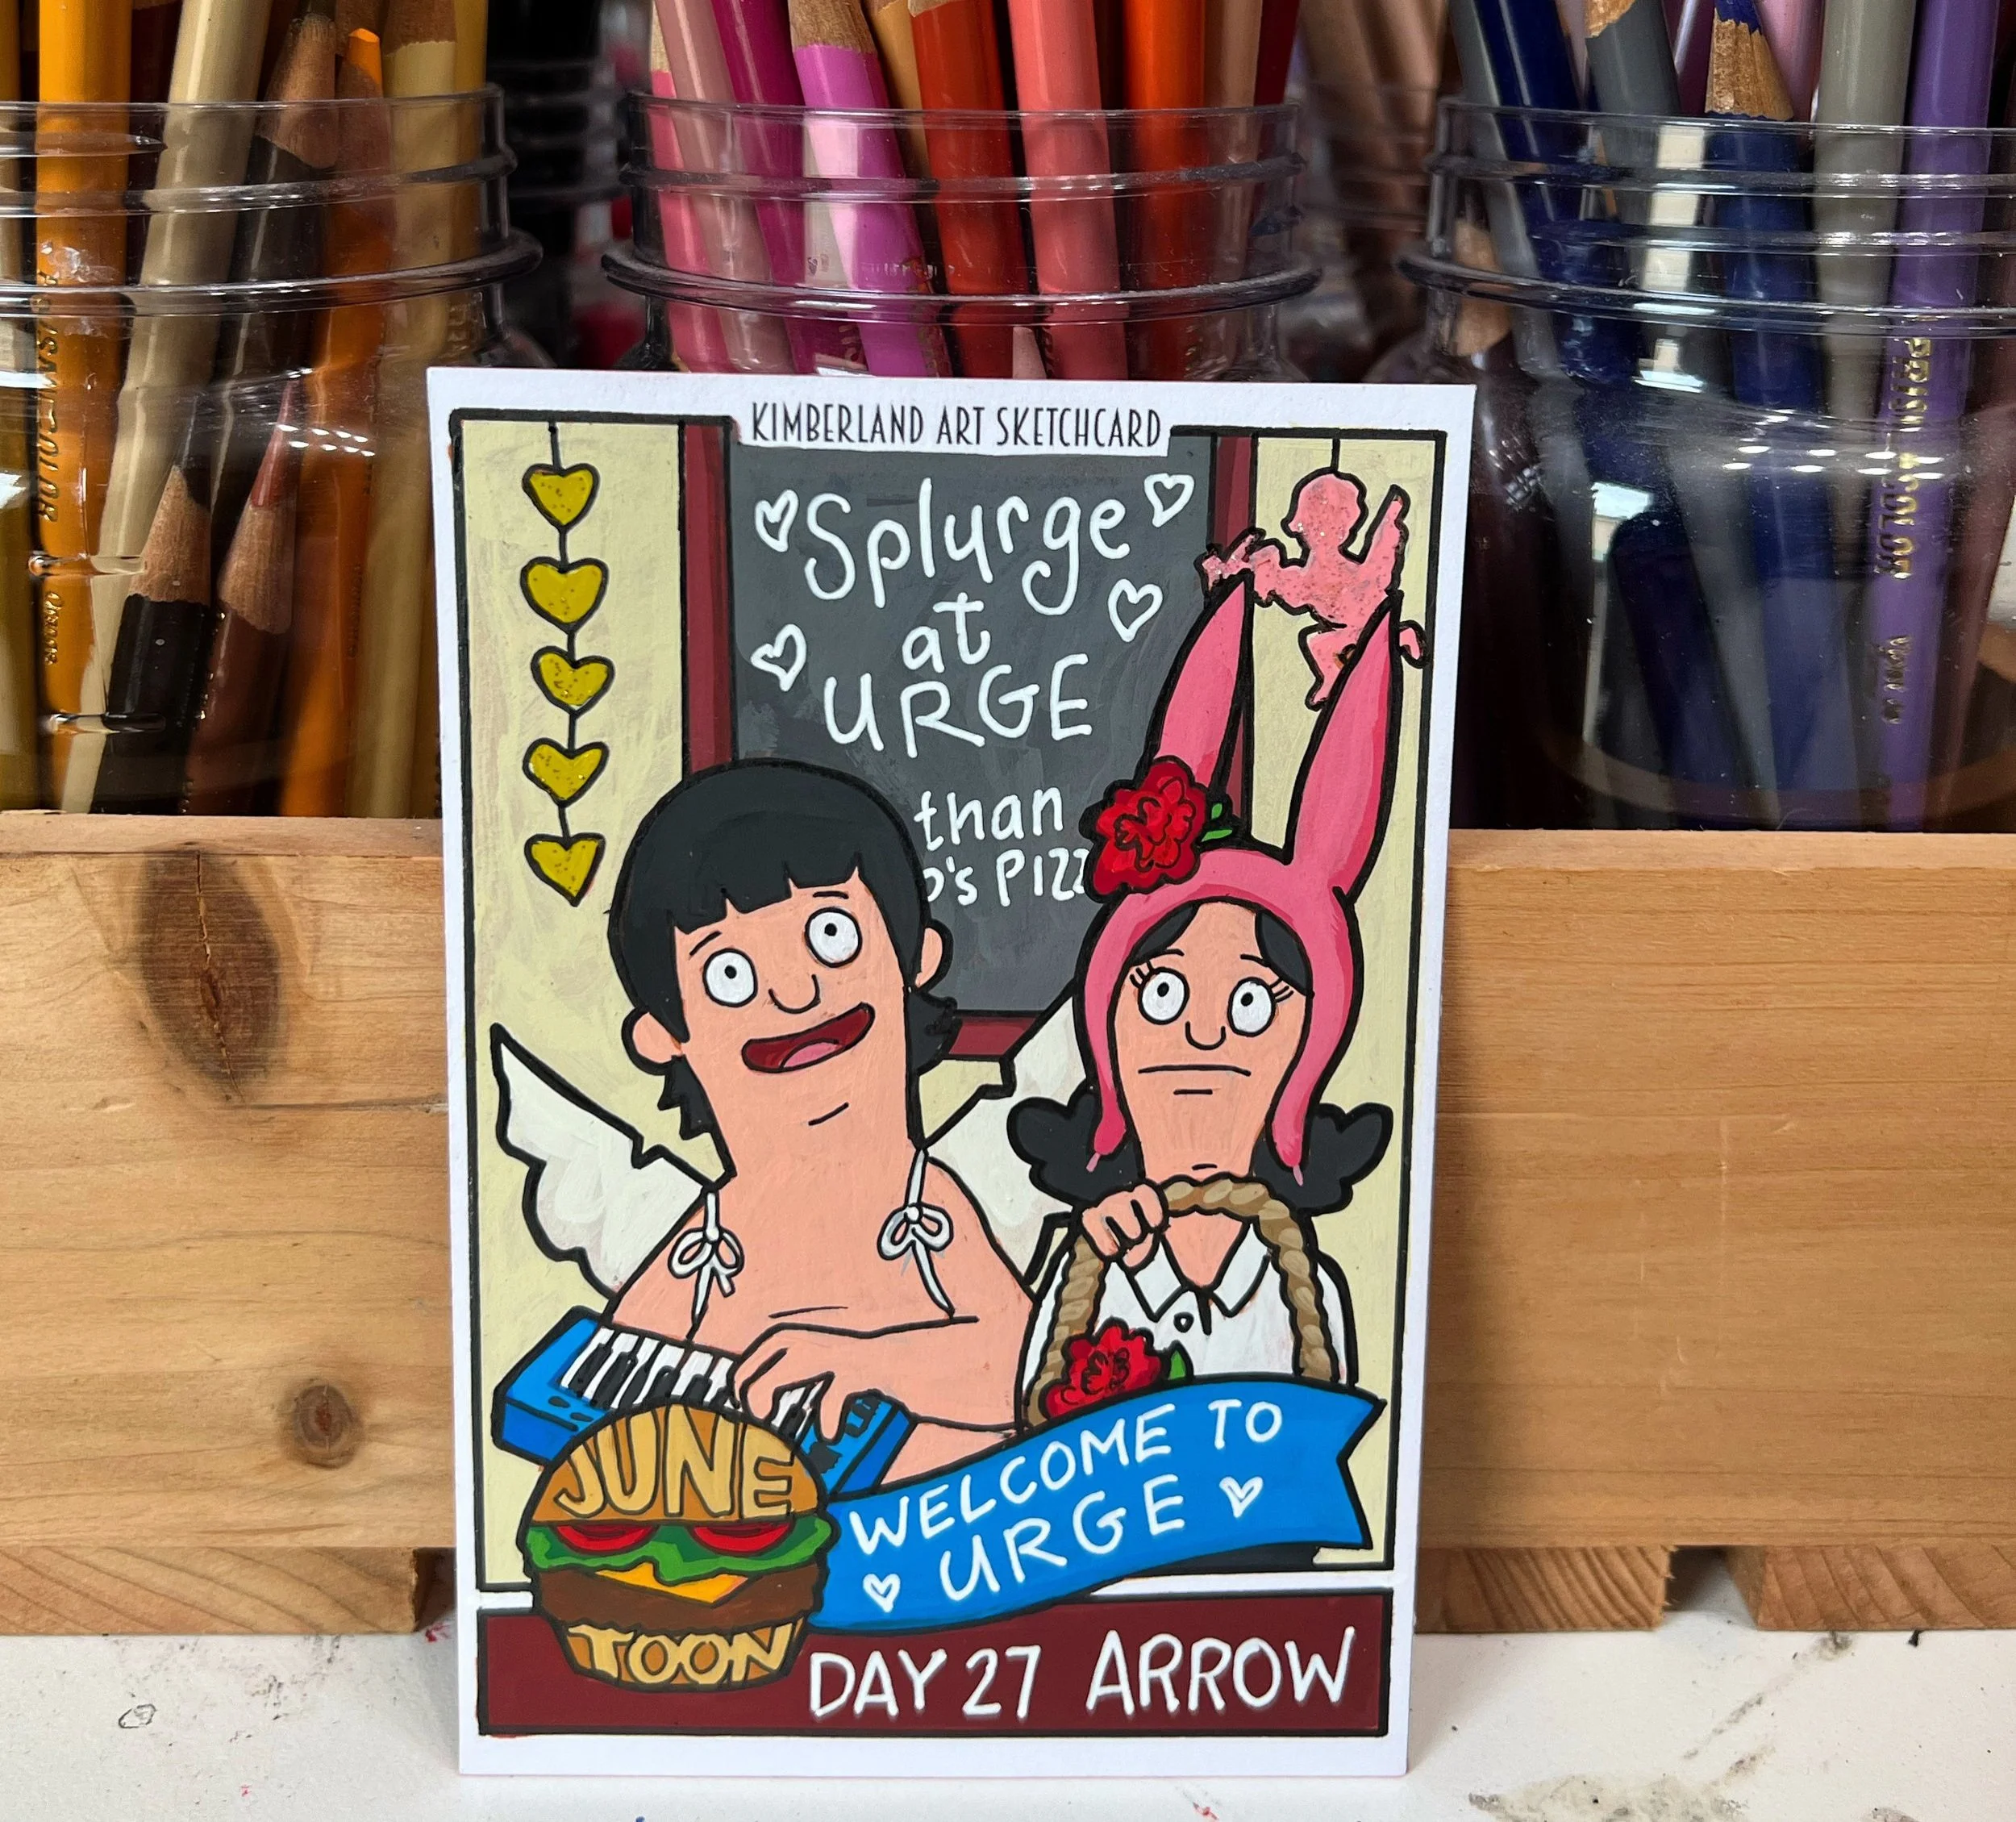 KIMBERLAND ART SKETCHCARD
Splurge
at
URGE
than
's PIZZ
WELCOME TO
URGE
JUNE
TOON
DAY 27 ARROW
PRISMACOLOR